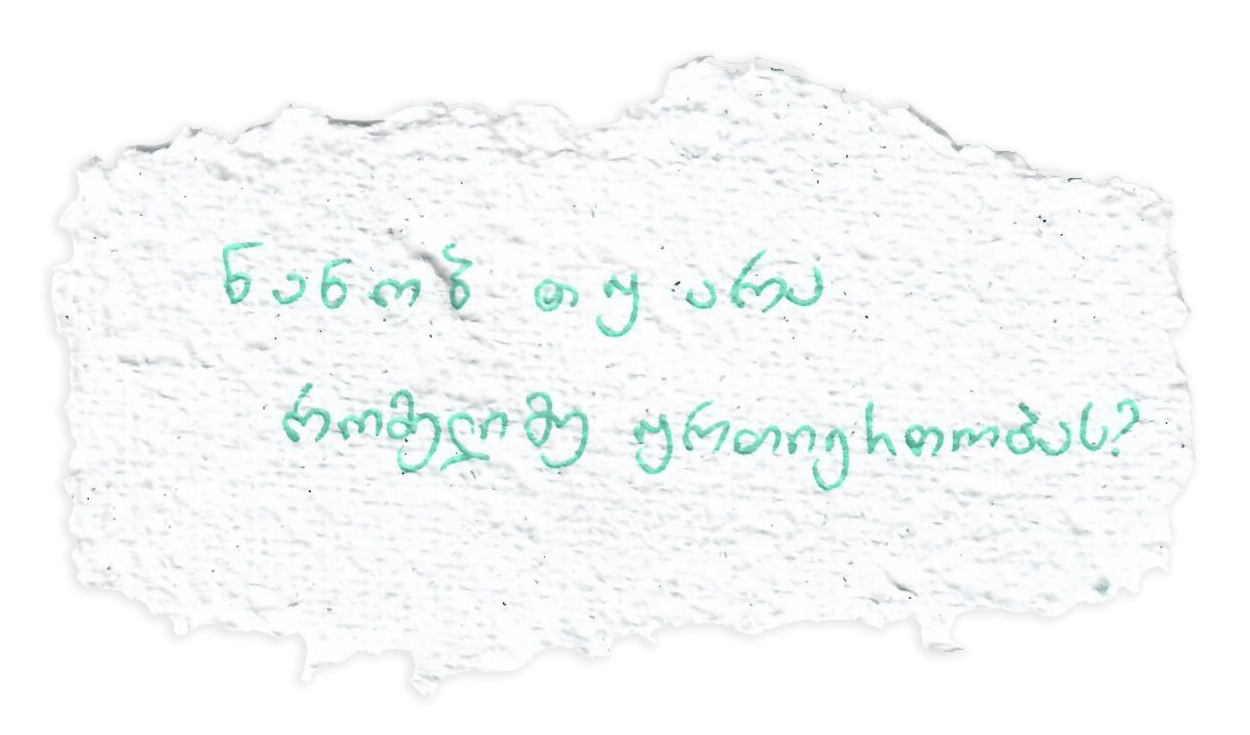 ნანობ თუ არა
რომელიმე ურთიერთობას?